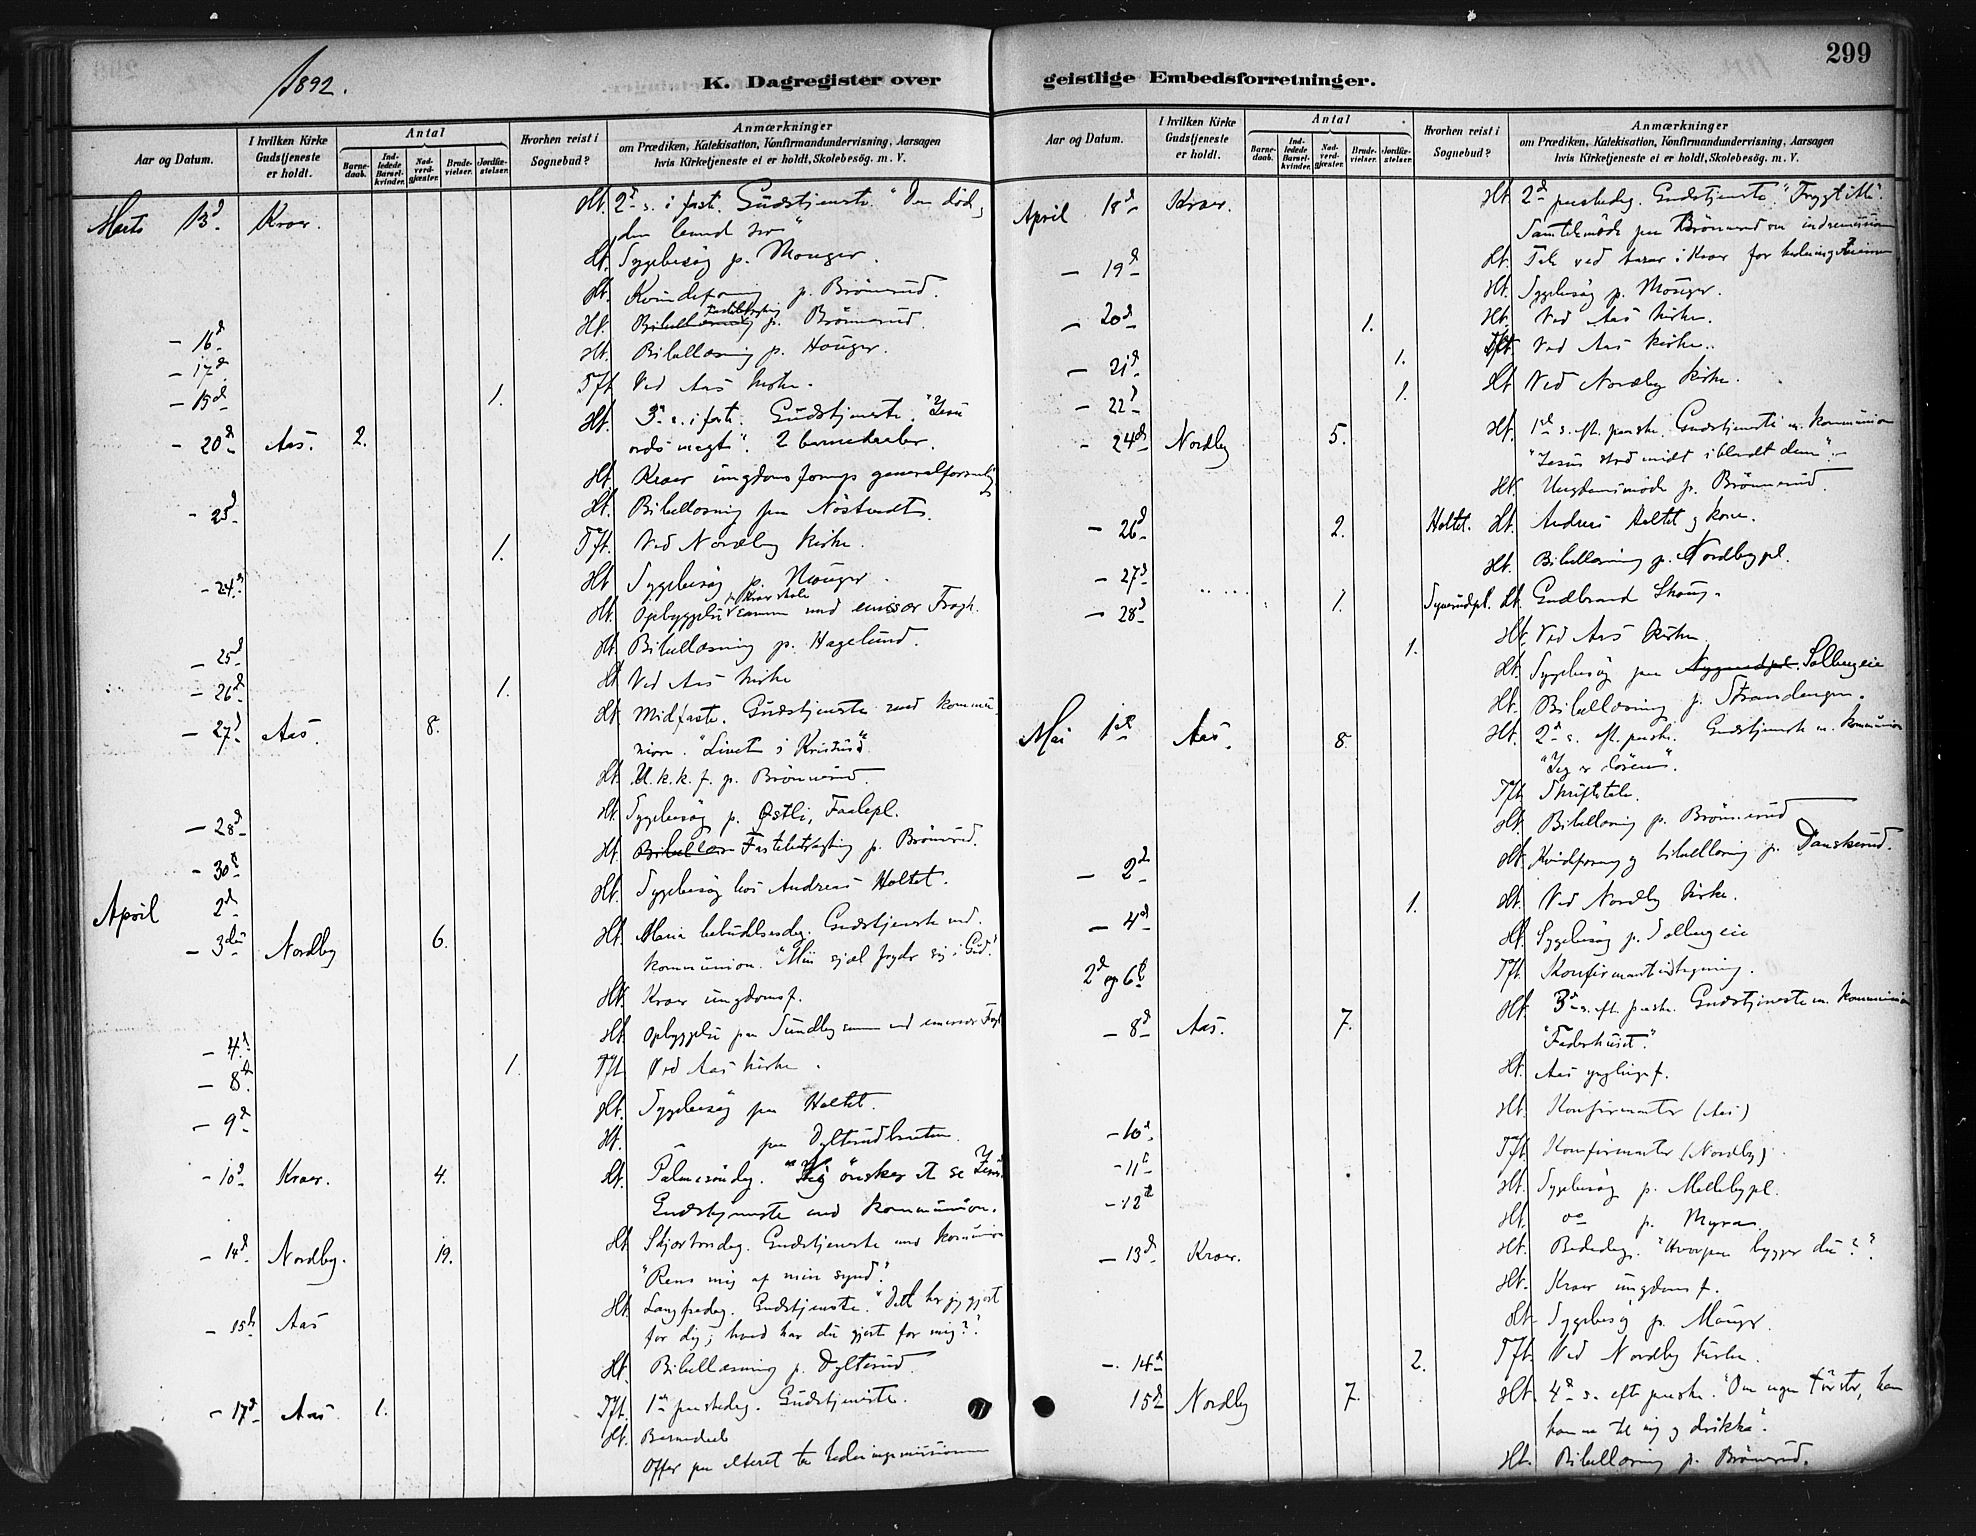 1892.
K. Dagregister over
Aar og Datum.
I hvilken Kirke Gudstjeneste er holdt.
Antal
Barnedaab.
Indledede Barselkvinder.
Nadverdgjæster.
Brudevielser.
Jordfæstelser.
Hvorhen reist i Sognebud?
Anmærkninger
om Prædiken, Katekisation, Konfirmandundervisning, Aarsagen
hvis Kirketjeneste ei er holdt, Skolebesøg. m. V.
Marts 13d Kroer. Ht. 2d s. i faste. Gudstjeneste. "Den død,
den levend
Ht. Sygebesøg p. Mouger.
Ht. Kvindeforning p. Brönnerud.
- 16d Ht. Fastebetragtning p. Brönnerud.
- 17d Ht. Bibellæsning p. Houger.
- 19d 1. Tft. Ved Aas kirke.
- 20d Aas. 2. Ht. 3d s. i faste. Gudstjeneste. "Jesu
ords magt". 2 barnedaaber.
Ht. Kroer ungdomsforngs generalforsmlg
- 23d Ht. Bibellæsning paa Nöstvedt.
1. Tft. Ved Nordby kirke.
- 24d Ht. Sygebesøg p. Mouger.
Ht. Opbyggelse p. Kroer skole samm med emissær Fragh.
- 25d Ht. Bibellæsning p. Hagelund.
- 26d 1. Ht. Ved Aas kirke
- 27d Aas. 8. Ht. Midfaste. Gudstjeneste med kommu-
nion. "Livet i Kristus".
Ht. U. k. k. f. p. Brönnerud.
- 28d Ht. Sygebesøg p. Østli, Faalepl.
- 30d Ht. Bibellæsn Fastebetragtning p. Brönnerud.
April 2d Ht. Sygebesøg hos Andreas Holtet.
- 3die Nordby 6. Ht. Maria bebudelsesdag. Gudstjeneste med
kommunion. "Min sjæl fryder sig i Gud."
Ht. Kroer ungdomsf.
- 4d Ht. Opbyggelse paa Sundby samm med emissær Fragh
- 8d 1. Tft Ved Aas kirke.
- 9d Ht. Sygebesøg paa Holtet.
Ht. paa Dyltrudbraaten.
- 10d Kroer. 4. Ht. Palmesöndag. "Vi önsker at se Jesus.
Gudstjeneste med kommunion.
- 14d Nordby. 19. Ht. Skjærtorsdag. Gudstjeneste med kommunion
"Rens mig af min synd."
- 15d Aas Ht. Langfredag. Gudstjeneste. "Dett har jeg gjort
for dig; hvad har du gjort for mig?"
Ht. Bibellæsning p. Dyltrud.
- 17d Aas. 1. Tft. 1ste paaskedag. Gudstjeneste.
Ht. Barnedaab
Offer paa alteret til hedningemissionen
299
geistlige Embedsforretninger.
Aar og Datum.
I hvilken Kirke Gudstjeneste er holdt.
Antal
Barnedaab.
Indledede Barselkvinder.
Nadverdgjæster.
Brudevielser.
Jordfæstelser.
Hvorhen reist i Sognebud?
Anmærkninger
om Prædiken, Katekisation, Konfirmandundervisning, Aarsagen
hvis Kirketjeneste ei er holdt, Skolebesøg. m. V.
April 18d Kroer. Ht. 2d paaskedag. Gudstjeneste. "Frygt ikke".
Samtalemøde paa Brönnerud om indremission
- 19d Ht. Tale ved basar i Kroer for hedningemissionen
Ht. Sygebesøg p. Mouger.
- 20d 1. Ht. Ved Aas kirke.
- 21d 1. Tft Ved Aas kirke.
- 22d 1. Ht Ved Nordby kirke.
- 24d Nordby 5. Ht. 1ste s. eft. paaske. Gudstjeneste m. kommunion
"Jesus stod midt iblandt dem".
Ht. Ungdomsmøde p. Brönnerud.
- 26d 2. Holtet. Ht. Andreas Holtet og kone.
- 27d Ht. Bibellæsning p. Nordbypl.
- 28d 1. Ht. Gudbrand Skoug.
1. Ht. Ved Aas kirke
Ht. Sygebesøg paa Solbergeie
Ht. Bibellæsning p. Strandengen.
Mai 1ste Aas. 8. Ht. 2d s. eft. paaske. Gudstjeneste m. kommunion
"Jeg er dören".
Tft Skriftetale.
Ht. Bibellæsning p. Brönnerud
- 2d Ht. Kvindforning og bibellæsning p. Danskerud.
- 4d 1. Ht. Ved Nordby kirke.
Ht. Sygebesøg p. Solbergeie
2d og 6te Tft. Konfirmantindtegning.
- 8d Aas. 7. Ht. 3d s. eft. paaske. Gudstjeneste m. kommunion
"Faderhuset."
Ht. Aas ynglingef.
- 10d Ht. Konfirmanter (Aas)
- 11te Tft. Konfirmanter (Nordby)
- 12te Ht. Sygebesøg p. Mellebypl.
Ht. do p. Myra.
- 13d Kroer. Ht. Bededag. "Hvorpaa bygger du?".
Ht. Kroer ungdomsf.
Ht. Sygebesøg p. Mouger.
- 14d 2. Tft. Ved Nordby kirke.
15d Nordby 7. Ht. 4d s. efter paaske. "Om nogen törster, han
komme til mig og drikke".
Ht. Bibellæsning p. Brönnerud.